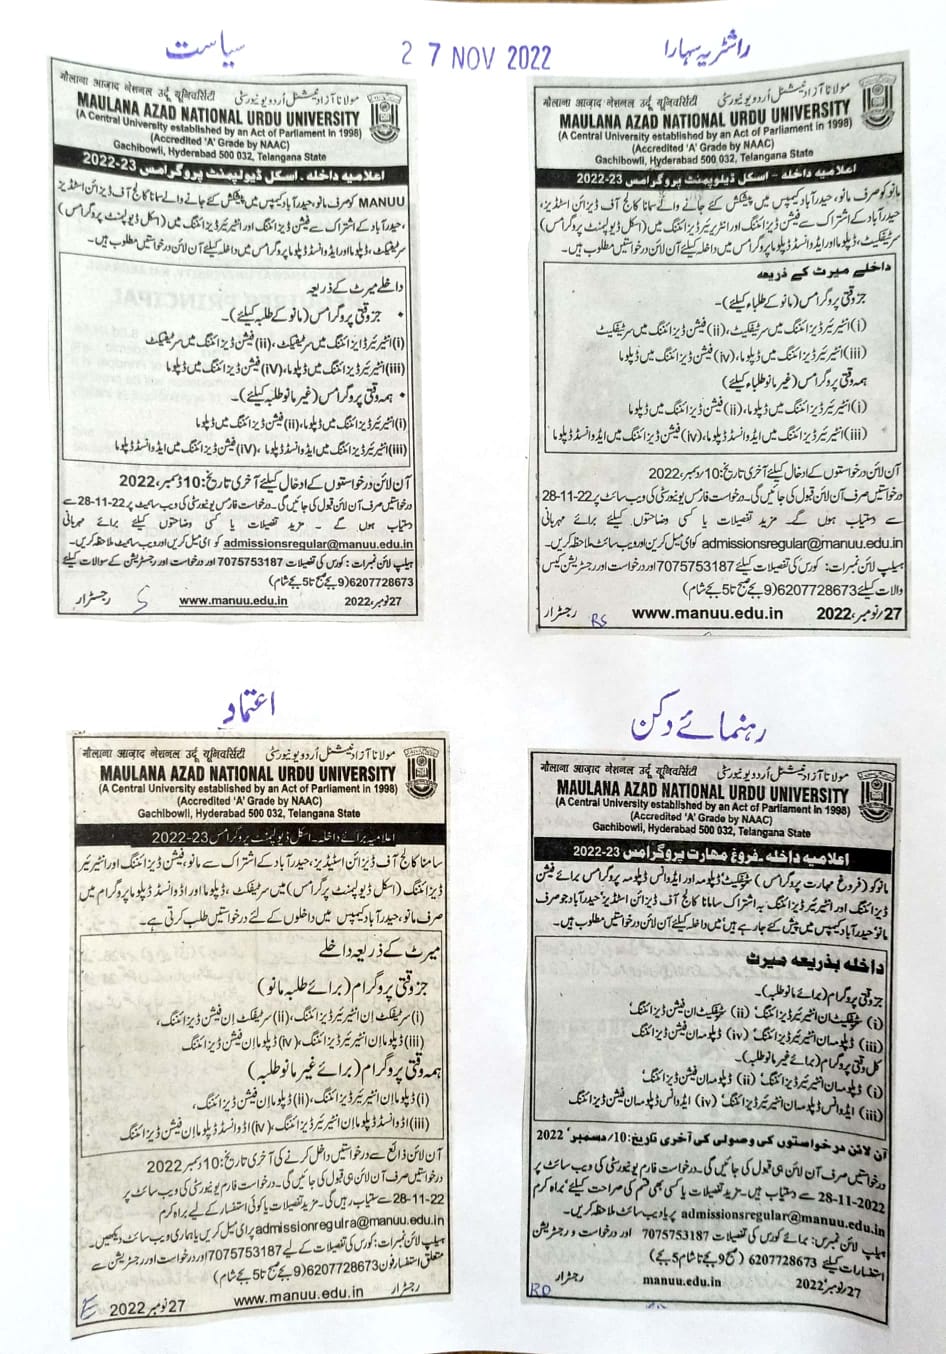 سیاست
2 7 NOV 2022
راشٹریہ سہارا
मौलाना आज़ाद नेशनल उर्दू यूनिवर्सिटी مولانا آزاد نیشنل اُردو یونیورسٹی
MAULANA AZAD NATIONAL URDU UNIVERSITY
(A Central University established by an Act of Parliament in 1998)
(Accredited 'A' Grade by NAAC)
Gachibowli, Hyderabad 500 032, Telangana State
اعلامیہ داخلہ ۔ اسکل ڈیولپمنٹ پروگرامس 23-2022
MANUU کو صرف مانو، حیدرآباد کیمپس میں پیشکش کئے جانے والے سمانا کالج آف ڈیزائن اسٹڈیز
، حیدرآباد کے اشتراک سے فیشن ڈیزائننگ اور انٹیریئر ڈیزائننگ میں (اسکل ڈیولپمنٹ پروگرامس)
سرٹیفکیٹ، ڈپلوما اور ایڈوانسڈ ڈپلوما پروگرامس میں داخلہ کیلئے آن لائن درخواستیں مطلوب ہیں۔
داخلے میرٹ کے ذریعہ
• جز وقتی پروگرامس (مانو کے طلبہ کیلئے)۔
(i) انٹیریئر ڈیزائننگ میں سرٹیفکیٹ، (ii) فیشن ڈیزائننگ میں سرٹیفکیٹ
(iii) انٹیریئر ڈیزائننگ میں ڈپلوما، (iv) فیشن ڈیزائننگ میں ڈپلوما
• ہمہ وقتی پروگرامس (غیر مانو طلبہ کیلئے)۔
(i) انٹیریئر ڈیزائننگ میں ڈپلوما، (ii) فیشن ڈیزائننگ میں ڈپلوما
(iii) انٹیریئر ڈیزائننگ میں ایڈوانسڈ ڈپلوما، (iv) فیشن ڈیزائننگ میں ایڈوانسڈ ڈپلوما
آن لائن درخواستوں کے ادخال کیلئے آخری تاریخ: 10 ڈسمبر، 2022
درخواستیں صرف آن لائن قبول کی جائیں گی۔ درخواست فارمس یونیورسٹی کی ویب سائیٹ پر 22-11-28 سے
دستیاب ہوں گے ۔ مزید تفصیلات یا کسی وضاحتوں کیلئے برائے مہربانی
admissionsregular@manuu.edu.in کو ای میل کریں اور ویب سائیٹ ملاحظہ کریں۔
ہیلپ لائن نمبرات: کورس کی تفصیلات 7075753187 اور درخواست اور رجسٹریشن کے سوالات کیلئے
6207728673 (9 بجے صبح تا 5 بجے شام)
27 نومبر، 2022 www.manuu.edu.in رجسٹرار
S
मौलाना आज़ाद नेशनल उर्दू यूनिवर्सिटी مولانا آزاد نیشنل اُردو یونیورسٹی
MAULANA AZAD NATIONAL URDU UNIVERSITY
(A Central University established by an Act of Parliament in 1998)
(Accredited 'A' Grade by NAAC)
Gachibowli, Hyderabad 500 032, Telangana State
اعلامیہ داخلہ - اسکل ڈیلوپمنٹ پروگرامس 23-2022
مانو کو صرف مانو، حیدرآباد کیمپس میں پیشکش کئے جانے والے سمانا کالج آف ڈیزائن اسٹڈیز،
حیدرآباد کے اشتراک سے فیشن ڈیزائننگ اور انٹریئر ڈیزائننگ میں (اسکل ڈیولپمنٹ پروگرامس)
سرٹیفکیٹ، ڈپلوما اور ایڈوانسڈ ڈپلوما پروگرامس میں داخلہ کیلئے آن لائن درخواستیں مطلوب ہیں۔
داخلے میرٹ کے ذریعہ
جز وقتی پروگرامس (مانو کے طلباء کیلئے)۔
(i) انٹیریئر ڈیزائننگ میں سرٹیفکیٹ، (ii) فیشن ڈیزائننگ میں سرٹیفکیٹ
(iii) انٹیریئر ڈیزائننگ میں ڈپلوما، (iv) فیشن ڈیزائننگ میں ڈپلوما
ہمہ وقتی پروگرامس (غیر مانو طلباء کیلئے)
(i) انٹیریئر ڈیزائننگ میں ڈپلوما، (ii) فیشن ڈیزائننگ میں ڈپلوما
(iii) انٹیریئر ڈیزائننگ میں ایڈوانسڈ ڈپلوما، (iv) فیشن ڈیزائننگ میں ایڈوانسڈ ڈپلوما
آن لائن درخواستوں کے ادخال کیلئے آخری تاریخ: 10 دسمبر، 2022
درخواستیں صرف آن لائن قبول کی جائیں گی۔ درخواست فارمس یونیورسٹی کی ویب سائٹ پر 22-11-28
سے دستیاب ہوں گے۔ مزید تفصیلات یا کسی وضاحتوں کیلئے برائے مہربانی
admissionsregular@manuu.edu.in کو ای میل کریں اور ویب سائٹ ملاحظہ کریں۔
ہیلپ لائن نمبرات: کورس کی تفصیلات کیلئے 7075753187 اور درخواست اور رجسٹریشن کیس
والات کیلئے 6207728673 (9 بجے صبح تا 5 بجے شام)
27/نومبر، 2022 www.manuu.edu.in رجسٹرار
RS
اعتماد
मौलाना आज़ाद नेशनल उर्दू यूनिवर्सिटी مولانا آزاد نیشنل اُردو یونیورسٹی
MAULANA AZAD NATIONAL URDU UNIVERSITY
(A Central University established by an Act of Parliament in 1998)
(Accredited 'A' Grade by NAAC)
Gachibowli, Hyderabad 500 032, Telangana State
اعلامیہ برائے داخلہ۔ اسکل ڈیولپمنٹ پروگرامس 23-2022
سامنا کالج آف ڈیزائن اسٹیڈیز، حیدرآباد کے اشتراک سے مانو، فیشن ڈیزائننگ اور انٹیریئر
ڈیزائننگ (اسکل ڈیولپمنٹ پرگرامس) میں سرٹیفکٹ، ڈپلوما اور اڈوانسڈ ڈپلوما پروگرام میں
صرف مانو، حیدرآباد کیمپس میں داخلوں کے لئے درخواستیں طلب کرتی ہے۔
میرٹ کے ذریعہ داخلے
جز وقتی پروگرام (برائے طلبہ مانو)
(i) سرٹیفکٹ اِن انٹیریئر ڈیزائننگ، (ii) سرٹیفکٹ اِن فیشن ڈیزائننگ،
(iii) ڈپلوما اِن انٹیریئر ڈیزائننگ، (iv) ڈپلوما اِن فیشن ڈیزائننگ
ہمہ وقتی پروگرام (برائے غیر مانو طلبہ)
(i) ڈپلوما اِن انٹیریئر ڈیزائننگ، (ii) ڈپلوما اِن فیشن ڈیزائننگ،
(iii) اڈوانسڈ ڈپلوما اِن انٹیریئر ڈیزائننگ، (iv) اڈوانسڈ ڈپلوما اِن فیشن ڈیزائننگ
آن لائن ذرائع سے درخواستیں داخل کرنے کی آخری تاریخ: 10 دسمبر 2022
درخواستیں صرف آن لائن ہی قبول کی جائیں گی۔ درخواست فارم یونیورسٹی کی ویب سائٹ پر
28-11-22 سے دستیاب رہیں گی۔ مزید تفصیلات یا کوئی استفسار کے لیے براہ کرم
admissionregulra@manuu.edu.in پر ای میل کریں یا ہماری ویب سائٹ دیکھیں۔
ہیلپ لائن نمبرات: کورس کی تفصیلات کے لیے 7075753187 اور درخواست اور رجسٹریشن سے
متعلق استفسار فون 6207728673 (9 بجے صبح تا 5 بجے شام)
27 نومبر 2022 www.manuu.edu.in رجسٹرار
E
رہنمائے دکن
मौलाना आज़ाद नेशनल उर्दू यूनिवर्सिटी مولانا آزاد نیشنل اُردو یونیورسٹی
MAULANA AZAD NATIONAL URDU UNIVERSITY
(A Central University established by an Act of Parliament in 1998)
(Accredited 'A' Grade by NAAC)
Gachibowli, Hyderabad 500 032, Telangana State
اعلامیہ داخلہ۔ فروغ مہارت پروگرامس 23-2022
مانو کو (فروغ مہارت پروگرامس) سرٹیفکیٹ، ڈپلومہ اور ایڈوانس ڈپلومہ پروگرامس برائے فیشن
ڈیزائننگ اور انٹیریئر ڈیزائننگ بہ اشتراک سامانا کالج آف ڈیزائن اسٹڈیز حیدرآباد جو صرف
مانو حیدرآباد کیمپس میں پیش کئے جا رہے ہیں میں داخلہ کیلئے آن لائن درخواستیں مطلوب ہیں۔
داخلہ بذریعہ میرٹ
جز وقتی پروگرام (برائے مانو طلبہ)۔
(i) سرٹیفکیٹ ان انٹیریئر ڈیزائننگ، (ii) سرٹیفکیٹ ان فیشن ڈیزائننگ
(iii) ڈپلومہ ان انٹیریئر ڈیزائننگ، (iv) ڈپلومہ ان فیشن ڈیزائننگ
کل وقتی پروگرام (برائے غیر مانو طلبہ)۔
(i) ڈپلومہ ان انٹیریئر ڈیزائننگ، (ii) ڈپلومہ ان فیشن ڈیزائننگ
(iii) ایڈوانس ڈپلومہ ان انٹیریئر ڈیزائننگ، (iv) ایڈوانس ڈپلومہ ان فیشن ڈیزائننگ
آن لائن درخواستوں کی وصولی کی آخری تاریخ: 10/دسمبر، 2022
درخواستیں صرف آن لائن ہی قبول کی جائیں گی۔ درخواست فارم یونیورسٹی کی ویب سائٹ پر
28-11-2022 سے دستیاب ہیں۔ مزید تفصیلات یا کسی بھی قسم کی صراحت کیلئے براہ کرم
admissionsregular@manuu.edu.in پر یا ویب سائٹ ملاحظہ کریں۔
ہیلپ لائن نمبرس: برائے کورس کی تفصیلات 7075753187 اور درخواست و رجسٹریشن
استفسارات کیلئے 6207728673 (صبح 9 بجے تا شام 5 بجے)
27/نومبر، 2022 manuu.edu.in رجسٹرار
RD